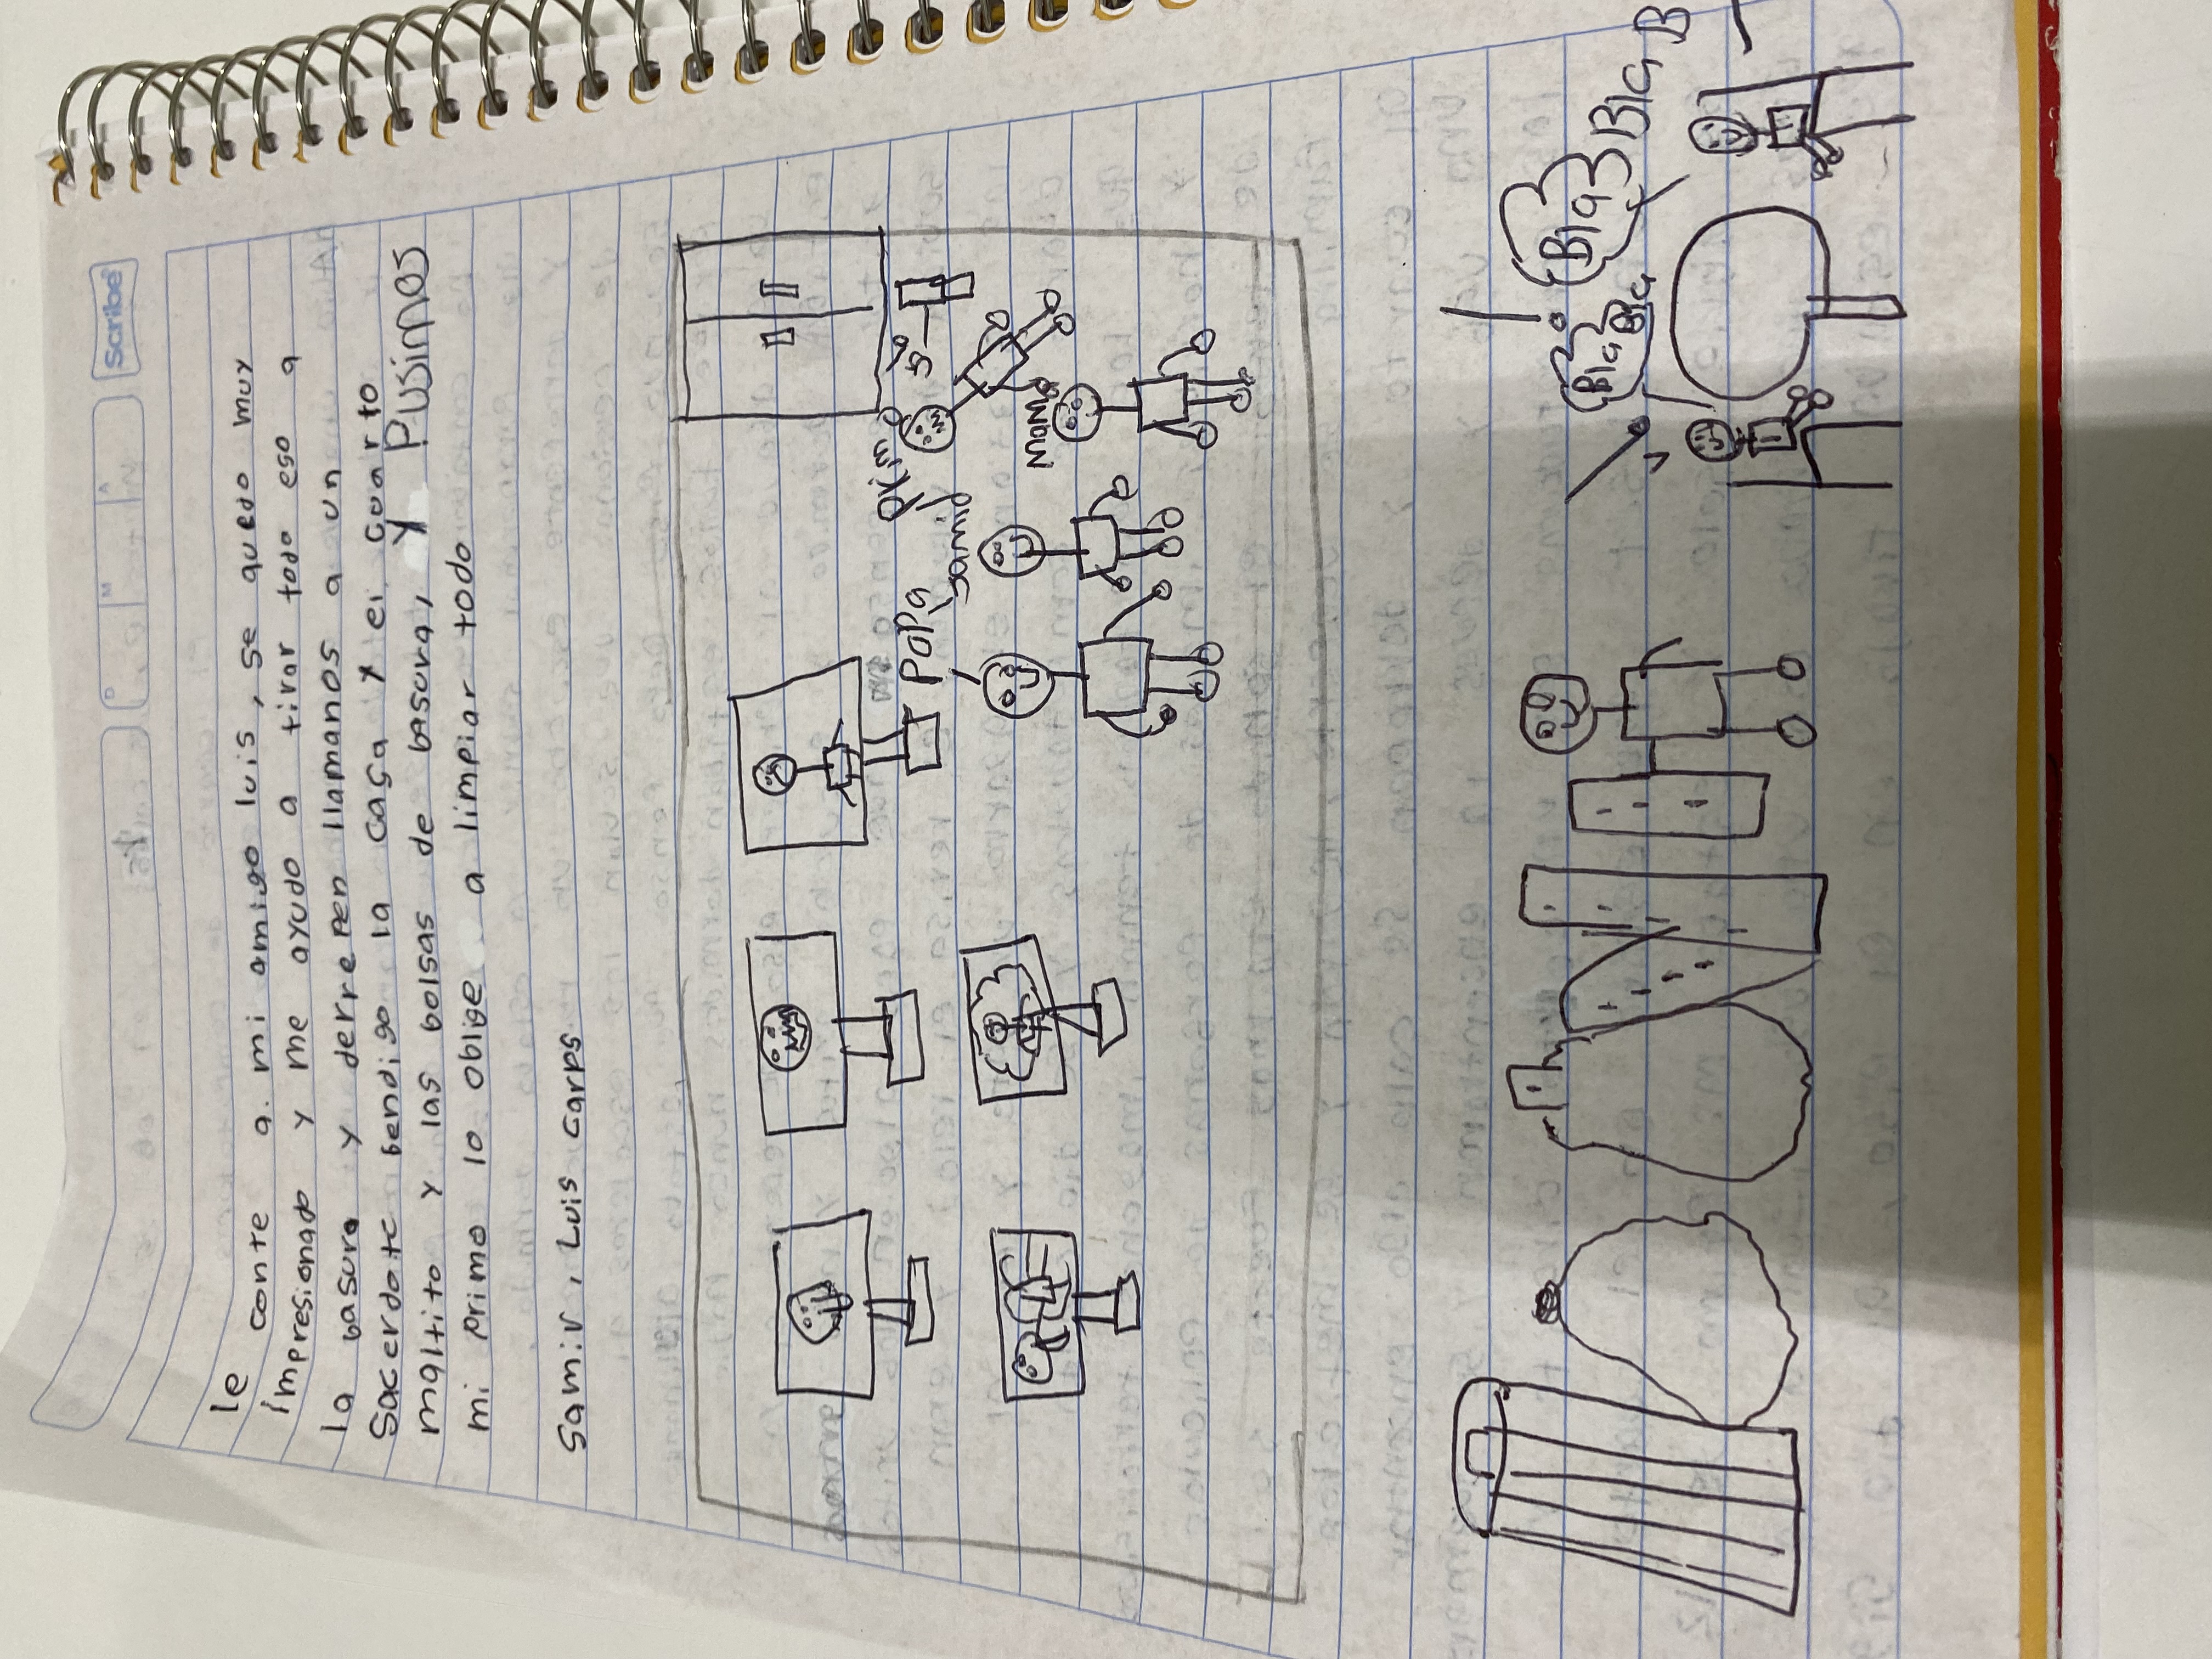 Scribe
le conte a mi amigo luis, se quedo muy
impresionado y me ayudo a tirar todo eso a
la basura y derrepen llamanos a un
Sacerdote bendigo la casa y el cuarto
maltito y las bolsas de basura, y Pusimos
mi primo lo oblige a limpiar todo
Samir, Luis Carps
PaPa
Samir
Prim
Bla Bla
Bla
Bla B